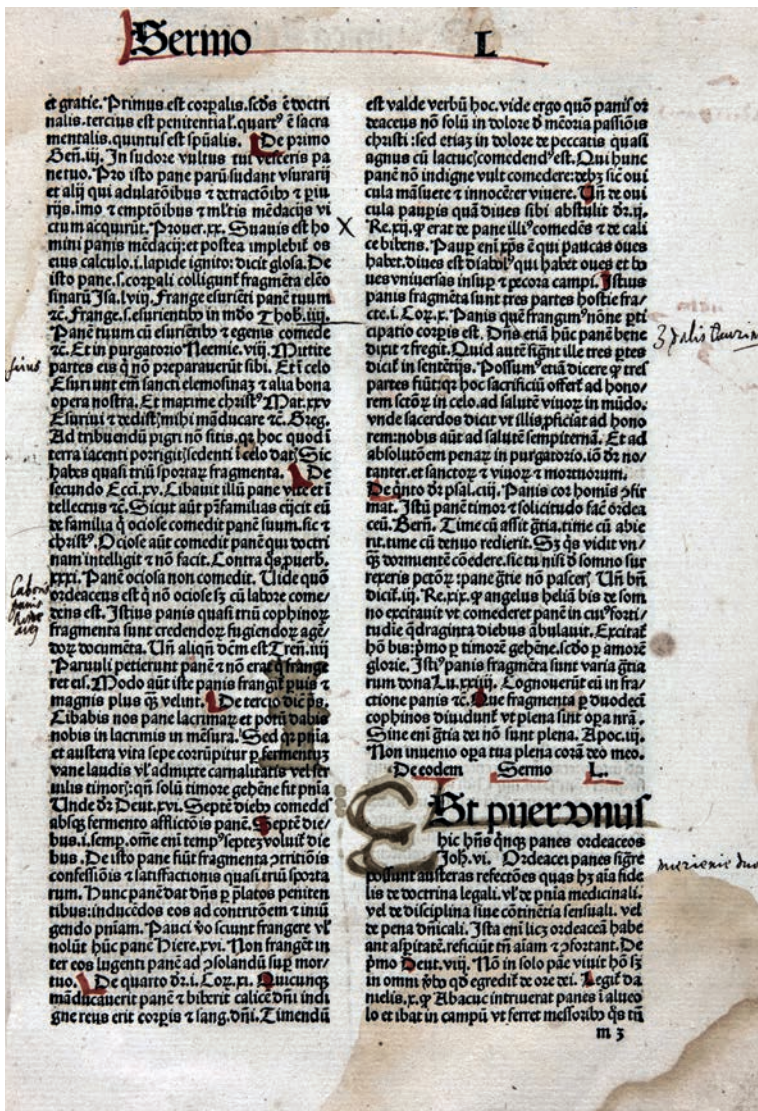 Sermo L
et gratie. Primus est corpalis. scds ē doctri
nalis. tercius est penitential. quartꝰ ē sacra
mentalis. quintus est spūalis. De primo
Geñ. iij. In sudore vultus tui vesceris pa
ne tuo. Pro isto pane parū sudant vsurarij
et alij qui adulatōibus ⁊ detractōibꝰ ⁊ piu
rijs. imo ⁊ emptōibus ⁊ mltis mēdacijs vi
ctum acquirūt. Prouer. xx. Suauis est ho
mini panis mēdacij: et postea implebit os
eius calculo. i. lapide ignito: dicit glosa. De
isto pane. s. corpali colligunt fragmēta eleo
sinarū Jsa. lvij. Frange esuriēti panē tuum
⁊c. Frange. s. esurientibꝰ in mūdo Thob. iiij.
Panē tuum cū esurientibꝰ ⁊ egenis comede
⁊c. Et in purgatorio Neemie. viij. Mittite
partes eis q̄ nō preparauerūt sibi. Et ī celo
Esuriunt em̄ sancti elemosinas ⁊ alia bona
opera nostra. Et maxime christꝰ Mat. xxv
Esuriui ⁊ dedistis mihi māducare ⁊c. Greg.
Ad tribuendū pigri nō sitis. qꝛ hoc quod ī
terra iacenti porrigitis sedenti ī celo datis Sic
habes quasi triū sportaꝝ fragmenta. De
secundo Ecci. xv. Cibauit illū pane vite et ī
tellectus ⁊c. Sicut aūt pr̄familias eijcit eū
de familia q̄ ociose comedit panē suum. sic ⁊
christꝰ. Ociose aūt comedit panē qui doctri
nam intelligit ⁊ nō facit. Contra q̄s puerb.
xxxi. Panē ociosa non comedit. Uide quō
ordeaceus est q̄ nō ociose sꝫ cū labore come/
dens est. Istius panis quasi triū cophinoꝝ
fragmenta sunt credendoꝝ fugiendoꝝ agē/
doꝝ documēta. Uñ aliqñ dc̄m est Tren. iiij
Paruuli petierunt panē ⁊ nō erat q̄ frange
ret eis. Modo aūt iste panis frangit puis ⁊
magnis plus qꝫ velint. De tercio dic̄ ps.
Cibabis nos pane lacrimaꝝ et potū dabis
nobis in lacrimis in mēsura. Sed qꝛ pn̄ia
et austera vita sepe corrūpitur p fermentuꝫ
vane laudis vl admixte carnalitatis vel ser
uilis timoris: qñ solū timore gehēne fit pnīa
Unde dr̄ Deut. xvi. Septē diebꝰ comedes
absqꝫ fermento afflictōis panē. Septē die/
bus. i. semp. om̄e enī tempꝰ septeꝫ voluit die
bus. De isto pane fiūt fragmenta ↄtritiōis
confessiōis ⁊ satisfactionis quasi triū sporta
rum. Hunc panē dat dn̄s p platos peniten
tibus: inducēdos eos ad contritōem ⁊ iniū
gendo pnīam. Pauci vo sciunt frangere vl
nolūt hūc panē Hiere. xvi. Non frangēt in
ter eos lugenti panē ad ↄsolandū sup mor/
tuo. De quarto dr̄. i. Coꝝ. xi. Quicunqꝫ
māducauerit panē ⁊ biberit calicē dn̄i indi
gne reus erit corpis ⁊ sang. dn̄i. Timendū
est valde verbū hoc. vide ergo quō panis or
deaceus nō solū in dolore ⁊ mēoria passiōis
christi: sed etiaꝫ in dolore de peccatis quasi
agnus cū lactucis comedendꝰ est. Qui hunc
panē nō indigne vult comedere: debꝫ sic oui
cula māsuete ⁊ innocēter viuere. Uñ de oui
cula paupis quā diues sibi abstulit dr̄. ij.
Re. xij. ꝙ erat de pane illiꝰ comedēs ⁊ de cali
ce bibens. Paup enī xp̄s ē qui paucas oues
habet. diues est diabolꝰ qui habet oues et bo
ues vniuersas insup ⁊ pecora campi. Istius
panis fragmēta sunt tres partes hostie fra/
cte. i. Coꝝ. x. Panis quē frangimꝰ nōne pti
cipatio corpis est. Dn̄s etiā hūc panē bene
dixit ⁊ fregit. Quid autē signt ille tres ptes
dicit in sentētijs. Possumꝰ etiā dicere ꝙ tres
partes fiūt: qꝛ hoc sacrificiū offert ad hono/
rem sctōꝝ in celo. ad salutē viuoꝝ in mūdo.
vnde sacerdos dicit vt illis pficiat ad hono
rem: nobis aūt ad salutē sempiternā. Et ad
absolutōem penaꝝ in purgatorio. iō dr̄ no/
tanter. et sanctoꝝ ⁊ viuoꝝ ⁊ mortuorum.
De q̄nto dr̄ psal. ciij. Panis cor homīs ↄfir
mat. Istū panē timor ⁊ solicitudo fac̄ ordea
ceū. Berñ. Time cū assit gr̄ia. time cū abie
rit. time cū denuo redierit. Sꝫ q̄s vidit vn/
qꝫ dormientē cōedere. sic tu nisi d̄ somno sur
rexeris pctōꝝ: pane gr̄ie nō pasceris. Uñ bñ
dicit. iij. Re. xix. ꝙ angelus heliā bis de som
no excitauit vt comederet panē in cuiꝰ forti/
tudie q̄draginta diebus ābulauit. Excitat
hō bis: pmo p timorē gehēne. scdo p amorē
glorie. Istiꝰ panis fragmēta sunt varia gr̄ia
rum dona Lu. xxiiij. Cognouerūt eū in fra/
ctione panis ⁊c. Que fragmenta p duodeci
cophinos diuidunt vt plena sint opa nr̄a.
Sine enī gr̄ia dei nō sunt plena. Apoc. iij.
Non inuenio opa tua plena corā deo meo.
De eodem Sermo L.
Est puer vnus
hic hn̄s q̄nqꝫ panes ordeaceos
Joh. vi. Ordeacei panes sigre
possunt austeras refectōes quas hꝫ aīa fide
lis de doctrina legali. vl de pnīa medicinali.
vel de disciplina siue cōtinētia sensuali. vel
de pena dn̄icali. Ista enī licꝫ ordeaceā habe
ant aspitatē. reficiūt tn̄ aīam ⁊ ↄfortant. De
pmo Deut. viij. Nō in solo pāe viuit hō sꝫ
in omni vbo qd̄ egredit de ore xi. Legit da
nielis. x. ꝙ Abacuc intriuerat panes ī alueo
lo et ibat in campū vt ferret messoribꝰ q̄s tn̄
m 3